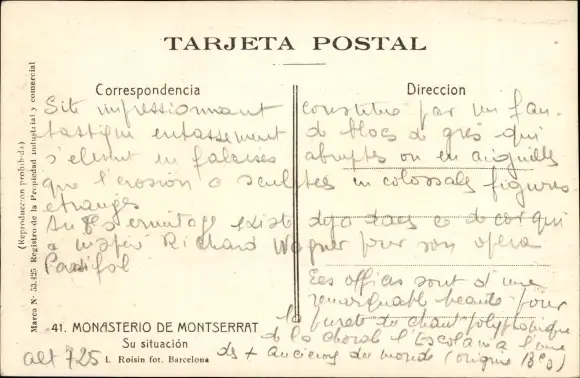 TARJETA POSTAL
Correspondencia
Direccion
Site impressionnant constitué par un fan-
tastique entassement de blocs de grès qui
s'élèvent en falaises abruptes ou en aiguilles
que l'érosion a sculptées en colossales figures
étranges
existe déjà dans ce décor qui
a inspiré Richard Wagner pour son opéra
Parsifal
Les offices sont d'une
remarquable beauté pour
la pureté du chant polyphonique
de la chorale l'Escolania l'une
des + anciennes du monde (origine 13e s)
41. MONASTERIO DE MONTSERRAT
Su situación
L. Roisin fot. Barcelona
alt 725
(Reproduccion prohibida)
Marca N· 53.425 Registro de la Propiedad industrial y comercial